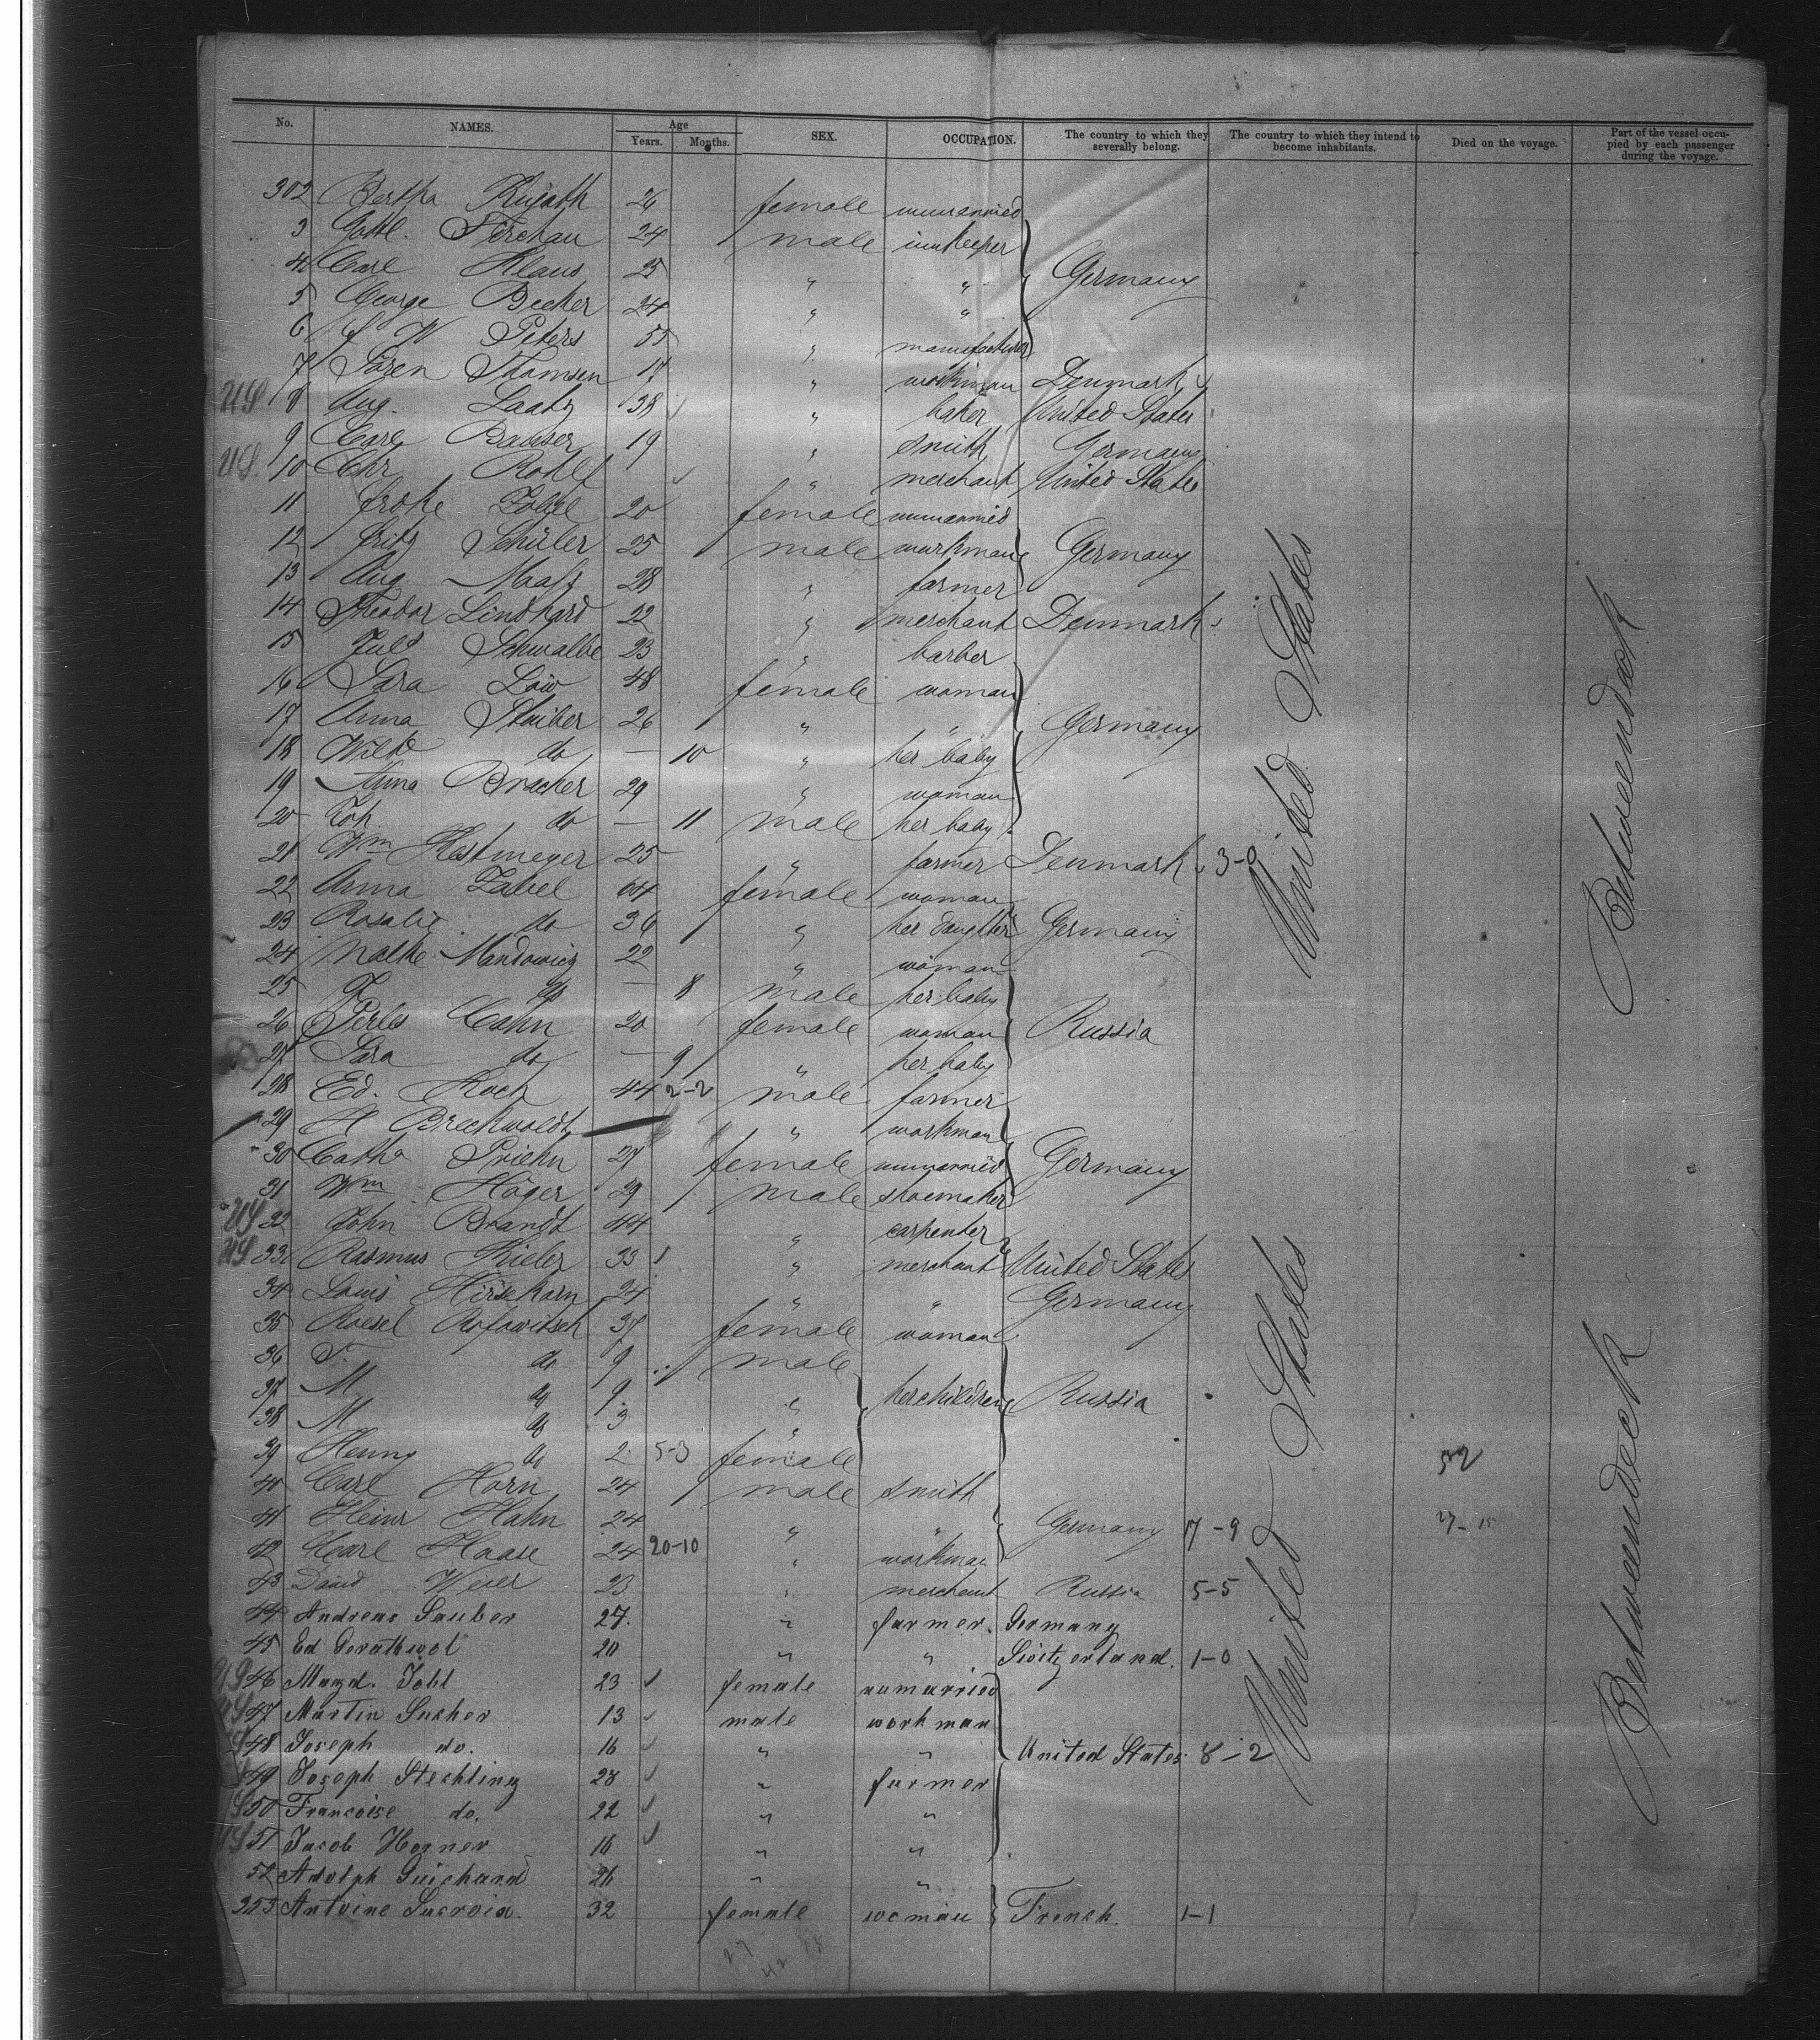 No. NAMES. Age Years. Months. SEX. OCCUPATION. The country to which they severally belong. The country to which they intend to become inhabitants. Died on the voyage. Part of the vessel occupied by each passenger during the voyage.
302 Bertha 26 female unmarried
3 Gottl. 24 male innkeeper
4 Carl Klaus 25 " " Germany
5 George Becker 24 " "
6 W Peters 55 " manufacturer
7 Sören Thomsen 17 " workman Denmark
US 8 Aug. Laatz 38 " baker United States
9 Carl 19 " smith Germany
US. 10 Chr Rohlf " merchant United States
11 20 female unmarried
12 Fritz Schüler 25 male workman Germany
13 Aug Maass 28 " farmer
14 Theodor Lindhard 22 " merchant Denmark
15 Juls Schwalbe 23 " barber
16 Sara Löw 48 female woman
17 Anna Stuiber 26 " " Germany
18 do — 10 " her baby
19 Anna Bracker 29 " woman
20 Joh. do — 11 male her baby
21 Wm Hestmeyer 25 " farmer Denmark 3-0
22 Anna Zabel 64 female woman
23 Rosalie do 36 " her daughter Germany
24 Malke Mandowicz 22 " woman
25 do — 8 male her baby
26 Perls Cahn 20 female woman Russia
27 Sara do — 9 " her baby
28 Ed. Koch 44 2-2 male farmer
29 H Breckwoldt " workman
30 Catha Priehn 27 female unmarried Germany
31 Wm Höger 29 male shoemaker
US 32 John Brandt 44 " carpenter
US 33 Rasmus Kieler 33 " merchant United States
34 Louis Hirschorn 24 " " Germany
35 Roesel 37 female woman
36 do 9 male
37 M do 9 " her children Russia
38 M do 3 "
39 Henny do 2 5-3 female 52
40 Carl Horn 24 male smith
41 Heinr Hahn 24 " " Germany 17-9
42 Carl Haase 24 20-10 " workman
43 David 23 " merchant Russia 5-5
44 Andreas Sauber 27 " farmer. Germany
45 Ed Gerathwol 20 " " Switzerland. 1-0
US 46 Magd. Johl 23 female unmarried
US 47 Martin Sucher 13 male workman
48 Joseph do. 16 " " United States 8-2
49 Joseph Stechling 28 " farmer
50 Francoise do. 22 " "
US 51 Jacob Horner 16 " "
52 Adolph Guichard 26 " "
353 Antoine 32 female woman French. 1-1
United States
United States
United States
Betweendeck
Betweendeck